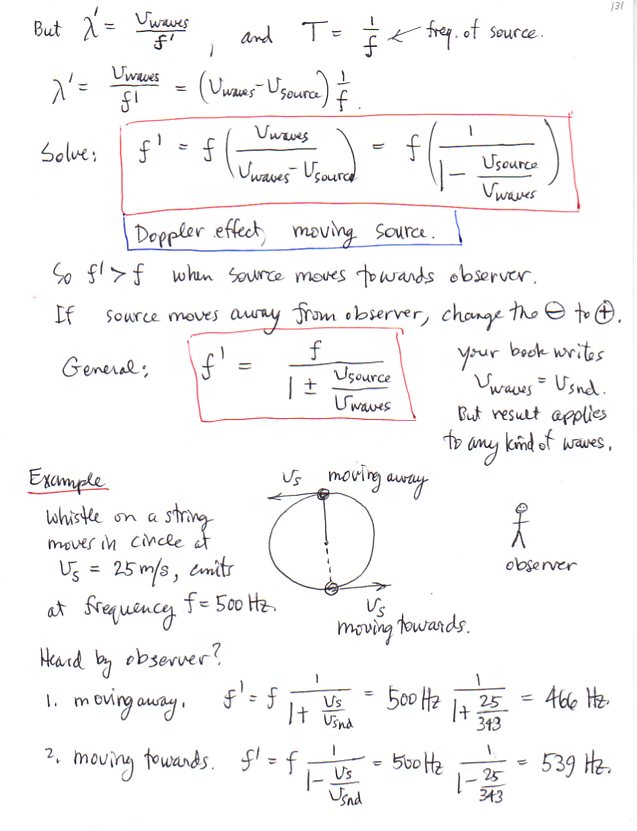 131
But λ' = v_waves / f' , and T = 1/f ← freq. of source.
λ' = v_waves / f' = (v_waves - v_source) 1/f.
Solve: f' = f (v_waves / (v_waves - v_source)) = f (1 / (1 - v_source/v_waves))
Doppler effect, moving source.
So f' > f when source moves towards observer.
If source moves away from observer, change the ⊖ to ⊕.
General: f' = f / (1 ± v_source/v_waves)
your book writes
v_waves = v_snd.
But result applies
to any kind of waves.
Example
v_s moving away
Whistle on a string
moves in circle at
v_s = 25 m/s, emits
at frequency f = 500 Hz.
observer
v_s
moving towards.
Heard by observer?
1. moving away. f' = f 1/(1 + v_s/v_snd) = 500 Hz 1/(1 + 25/343) = 466 Hz.
2. moving towards. f' = f 1/(1 - v_s/v_snd) = 500 Hz 1/(1 - 25/343) = 539 Hz.